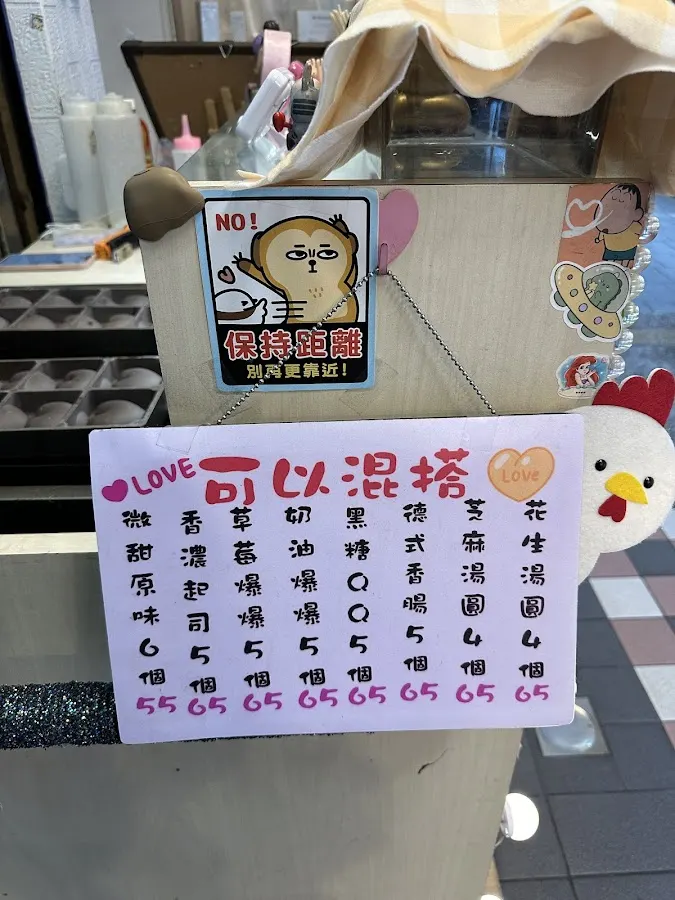 NO!
保持距離
別再更靠近!
LOVE 可以混搭 Love
微甜原味6個55
香濃起司5個65
草莓爆爆5個65
奶油爆爆5個65
黑糖QQ5個65
德式香腸5個65
芝麻湯圓4個65
花生湯圓4個65